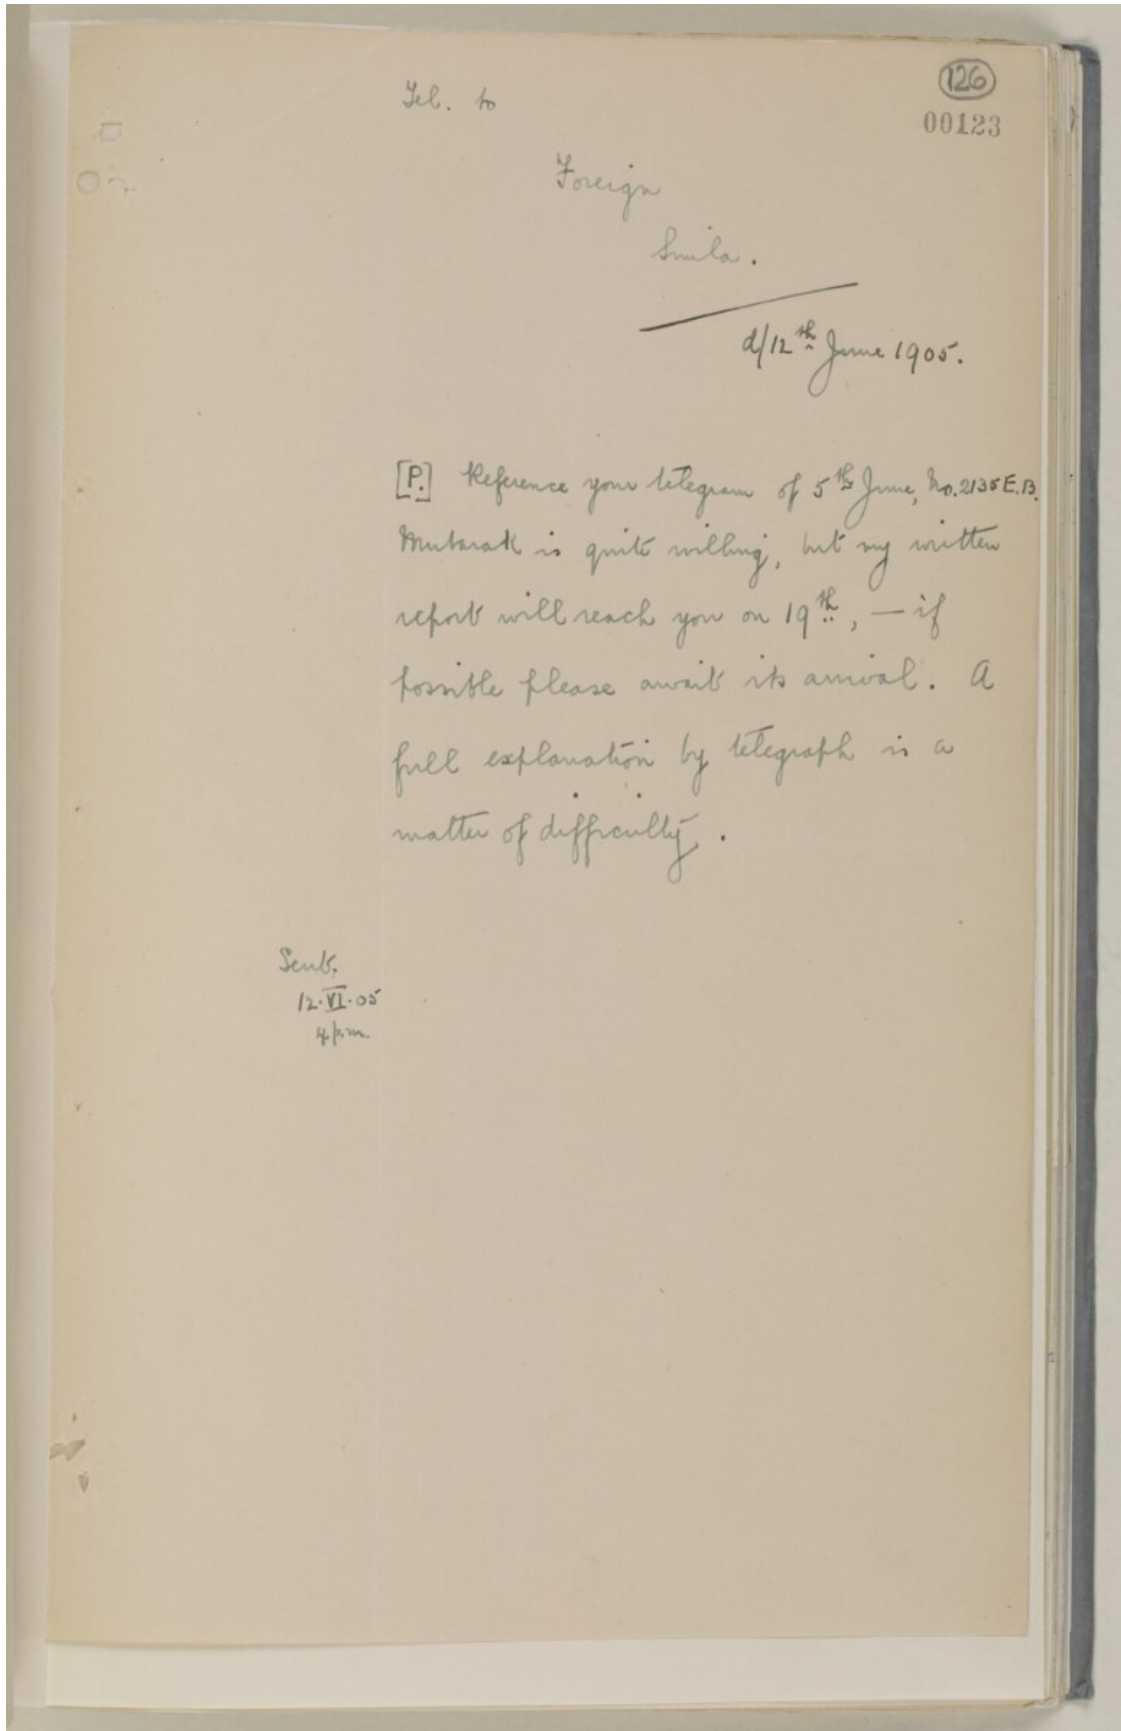 126
00123
Tel. to
Foreign
Simla.
d/12th June 1905.
[P.] Reference your telegram of 5th June, No. 2135 E.B.
Mubarak is quite willing, but my written
report will reach you on 19th, — if
possible please await its arrival. A
full explanation by telegraph is a
matter of difficulty.
Sent.
12.VI.05
4 p.m.